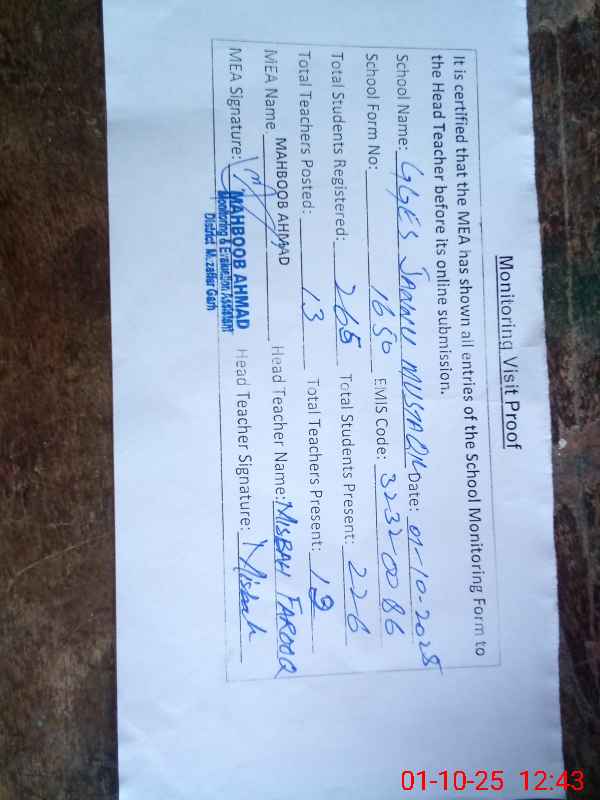 Monitoring Visit Proof
It is certified that the MEA has shown all entries of the School Monitoring Form to
the Head Teacher before its online submission.
School Name: GGES JAMMU MUSTAQIL Date: 01-10-2025
School Form No: 1650 EMIS Code: 32320086
Total Students Registered: 265 Total Students Present: 226
Total Teachers Posted: 13 Total Teachers Present:
MEA Name MAHBOOB AHMAD Head Teacher Name: MISBAH FAROOQ
MEA Signature: Head Teacher Signature: Misbah
MAHBOOB AHMAD
Monitoring & Evaluation Assistant
District Muzaffar Garh
01-10-25 12:43